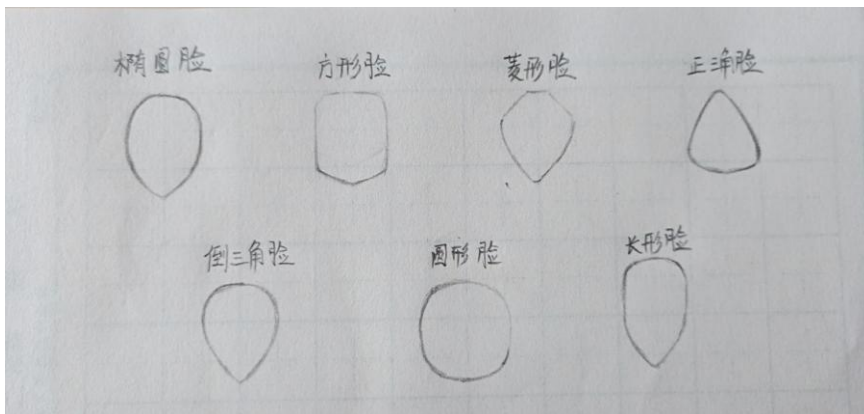 椭圆脸 方形脸 菱形脸 正三角脸
倒三角脸 圆形脸 长形脸